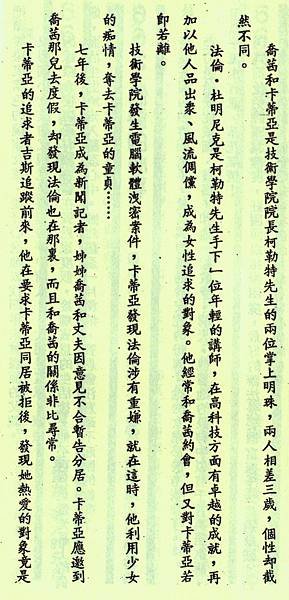 喬茜和卡蒂亞是技術學院院長柯勒特先生的兩位掌上明珠，兩人相差三歲，個性却截
然不同。
法倫·杜明尼克是柯勒特先生手下一位年輕的講師，在高科技方面有卓越的成就，再
加以他人品出衆、風流倜儻，成為女性追求的對象。他經常和喬茜約會，但又對卡蒂亞若
即若離。
技術學院發生電腦軟體洩密案件，卡蒂亞發現法倫涉有重嫌，就在這時，他利用少女
的痴情，奪去卡蒂亞的童貞……
七年後，卡蒂亞成為新聞記者，姊姊喬茜和丈夫因意見不合暫告分居。卡蒂亞應邀到
喬茜那兒去度假，却發現法倫也在那裏，而且和喬茜的關係非比尋常。
卡蒂亞的追求者吉斯追蹤前來，他在要求卡蒂亞同居被拒後，發現她熱愛的對象竟是